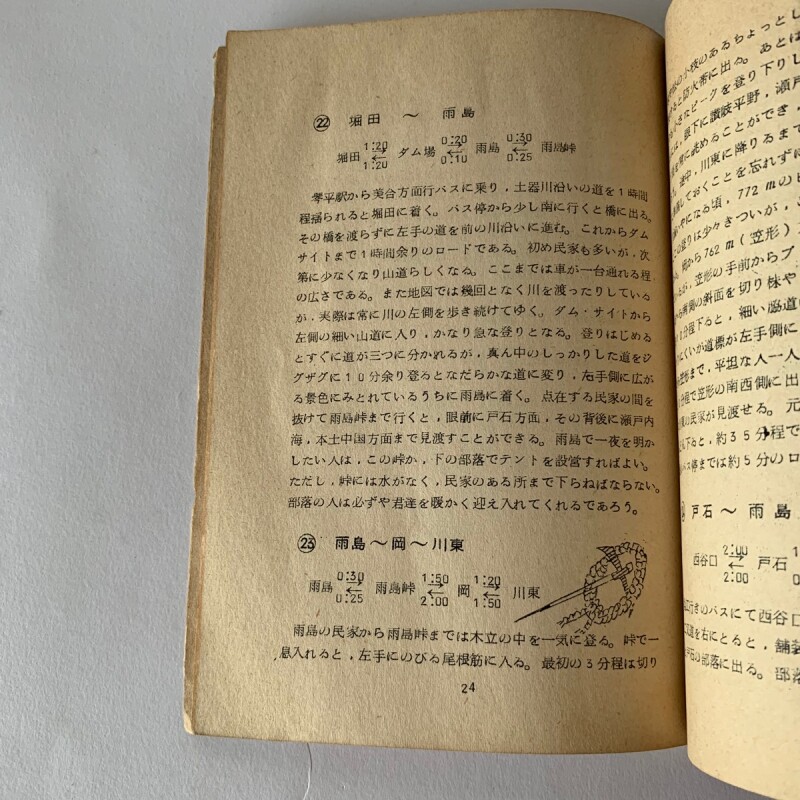 ㉒ 堀田 ～ 雨島
1:20 0:20 0:30
堀田 ⇄ ダム場 ⇄ 雨島 ⇄ 雨島峠
1:20 0:10 0:25
琴平駅から美合方面行バスに乗り，土器川沿いの道を1時間
程揺られると堀田に着く。バス停から少し南に行くと橋に出る。
その橋を渡らずに左手の道を前の川沿いに進む。これからダム
サイトまで1時間余りのロードである。初め民家も多いが，次
第に少なくなり山道らしくなる。ここまでは車が一台通れる程
の広さである。また地図では幾回となく川を渡ったりしている
が，実際は常に川の左側を歩き続けてゆく。ダム・サイトから
左側の細い山道に入り，かなり急な登りとなる。登りはじめる
とすぐに道が三つに分かれるが，真ん中のしっかりした道をジ
グザグに10分余り登るとなだらかな道に変り，右手側に広が
る景色にみとれているうちに雨島に着く。点在する民家の間を
抜けて雨島峠まで行くと，眼前に戸石方面，その背後に瀬戸内
海，本土中国方面まで見渡すことができる。雨島で一夜を明か
したい人は，この峠か，下の部落でテントを設営すればよい。
ただし，峠には水がなく，民家のある所まで下らねばならない。
部落の人は必ずや君達を暖かく迎え入れてくれるであろう。
㉓ 雨島～岡～川東
0:30 1:50 1:20
雨島 ⇄ 雨島峠 ⇄ 岡 ⇄ 川東
0:25 2:00 1:50
雨島の民家から雨島峠までは木立の中を一気に登る。峠で一
息入れると，左手にのびる尾根筋に入る。最初の3分程は切り
24
小枝のあるちょっとし
と防火帯に出る。あとは
小さなピークを登り下りし
は，眼下に讃岐平野，瀬戸
を常に眺めることができ，
途中，川東に降りるまで
しておくことを忘れずに
になる頃，772mのピ
登りは少々きついが，こ
から762m（笠形）
が，笠形の手前からブ
南側の斜面を切り株や
分程下ると，細い脇道に
にくいが道標が左手側に
まで，平坦な人一人
程で笠形の南西側に出
の民家が見渡せる。元
下ると，約35分程で
バス停までは約5分のロ
戸石～雨島
2:00
西谷口 ⇄ 戸石
2:00
行きのバスにて西谷口
道を右にとると，舗装
戸石の部落に出る。部落